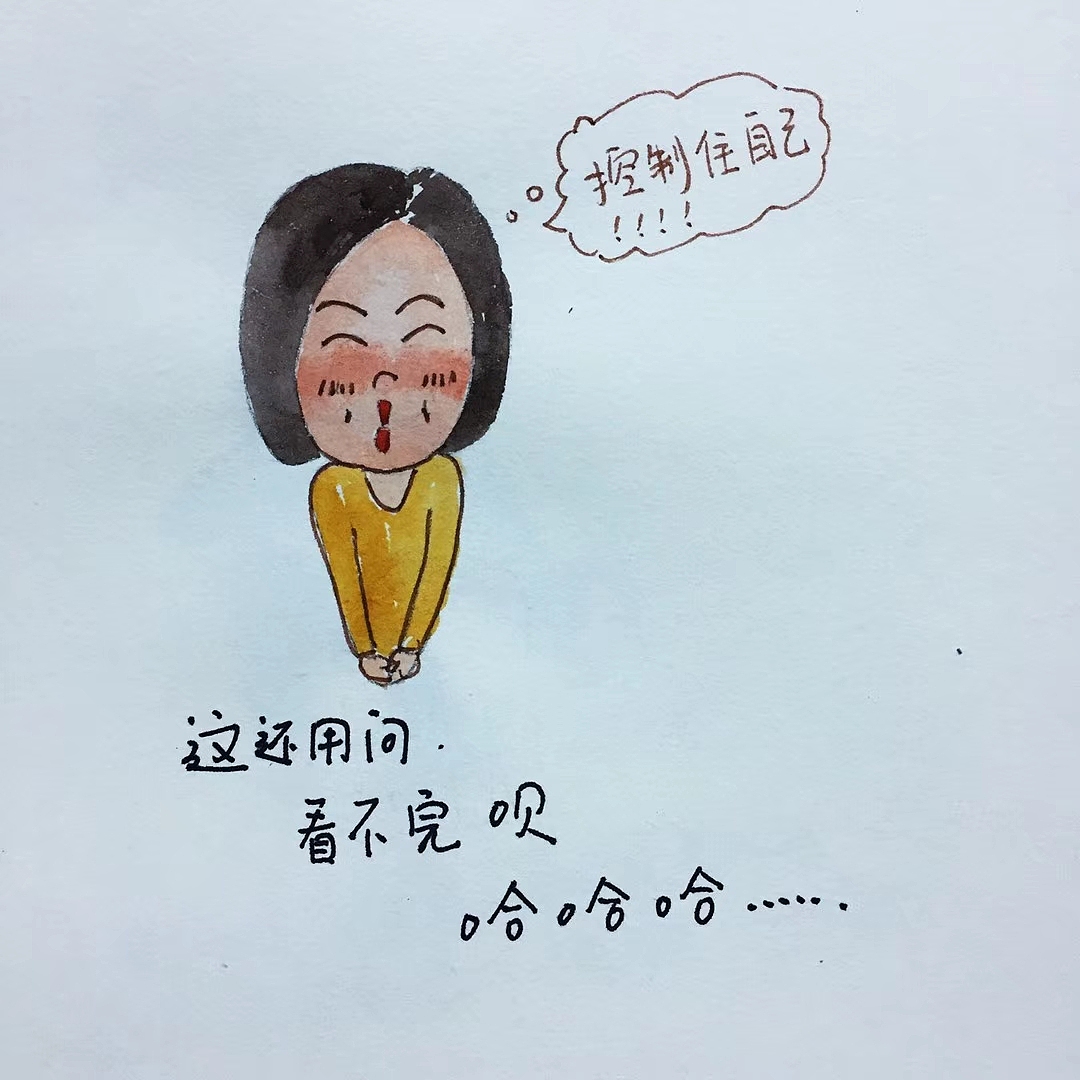 控制住自己
!!!!
这还用问.
看不完呗
哈哈哈......